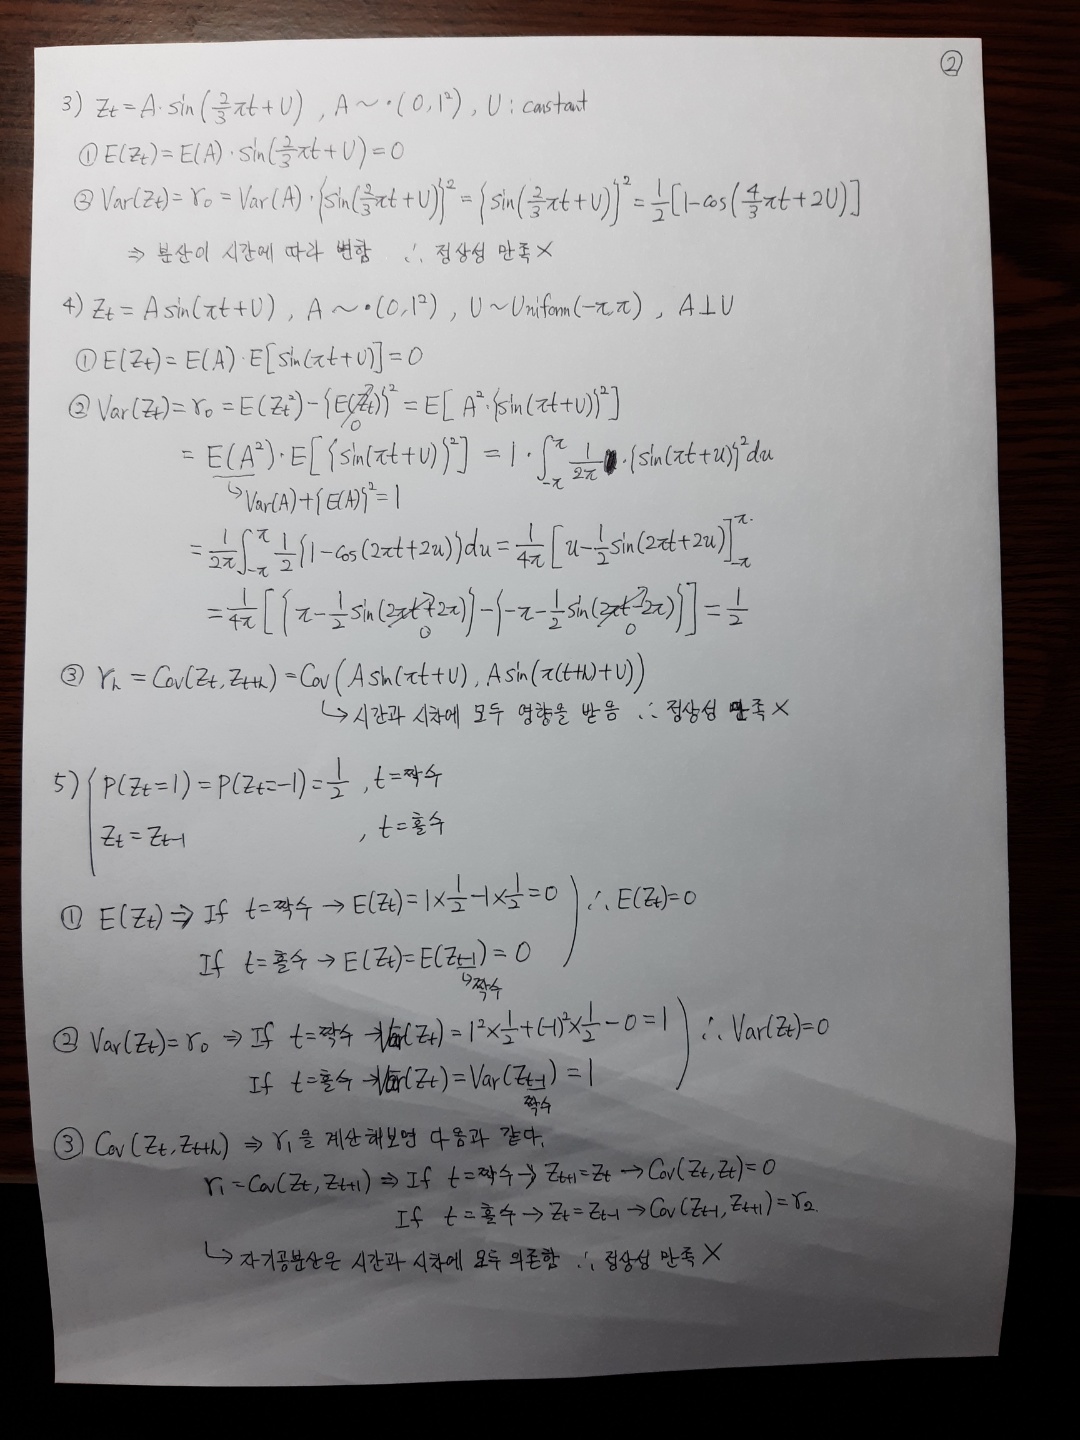 ②
3) Zt = A·sin(2/3πt+U) , A ~ ·(0, 1²) , U : constant
① E(Zt) = E(A)·sin(2/3πt+U) = 0
② Var(Zt) = r₀ = Var(A)·{sin(2/3πt+U)}² = {sin(2/3πt+U)}² = 1/2[1-cos(4/3πt+2U)]
⇒ 분산이 시간에 따라 변함 ∴ 정상성 만족 X
4) Zt = A sin(πt+U) , A ~ ·(0, 1²) , U ~ Uniform(-π, π) , A⊥U
① E(Zt) = E(A)·E[sin(πt+U)] = 0
② Var(Zt) = r₀ = E(Zt²) - {E(Zt)}² = E[A²·{sin(πt+U)}²]
0
= E(A²)·E[{sin(πt+U)}²] = 1·∫_{-π}^{π} 1/2π ·{sin(πt+u)}² du
↳ Var(A)+{E(A)}² = 1
= 1/2π ∫_{-π}^{π} 1/2 {1-cos(2πt+2u)}du = 1/4π [u-1/2 sin(2πt+2u)]_{-π}^{π}
= 1/4π [{π-1/2 sin(2πt+2π)}-{-π-1/2 sin(2πt-2π)}] = 1/2
0 0
③ rh = Cov(Zt, Zt+h) = Cov(A sin(πt+U), A sin(π(t+h)+U))
↳ 시간과 시차에 모두 영향을 받음 ∴ 정상성 만족 X
5) { P(Zt=1) = P(Zt=-1) = 1/2 , t=짝수
Zt = Zt-1 , t=홀수
① E(Zt) ⇒ If t=짝수 → E(Zt) = 1×1/2 -1×1/2 = 0 ) ∴ E(Zt)=0
If t=홀수 → E(Zt) = E(Zt-1) = 0
↳짝수
② Var(Zt) = r₀ ⇒ If t=짝수 → Var(Zt) = 1²×1/2+(-1)²×1/2 - 0 = 1 ) ∴ Var(Zt)=0
If t=홀수 → Var(Zt) = Var(Zt-1) = 1
짝수
③ Cov(Zt, Zt+h) ⇒ r₁을 계산해보면 다음과 같다.
r₁ = Cov(Zt, Zt+1) ⇒ If t=짝수 → Zt+1 = Zt → Cov(Zt, Zt) = 0
If t=홀수 → Zt = Zt-1 → Cov(Zt-1, Zt+1) = r₂.
↳ 자기공분산은 시간과 시차에 모두 의존함 ∴ 정상성 만족 X